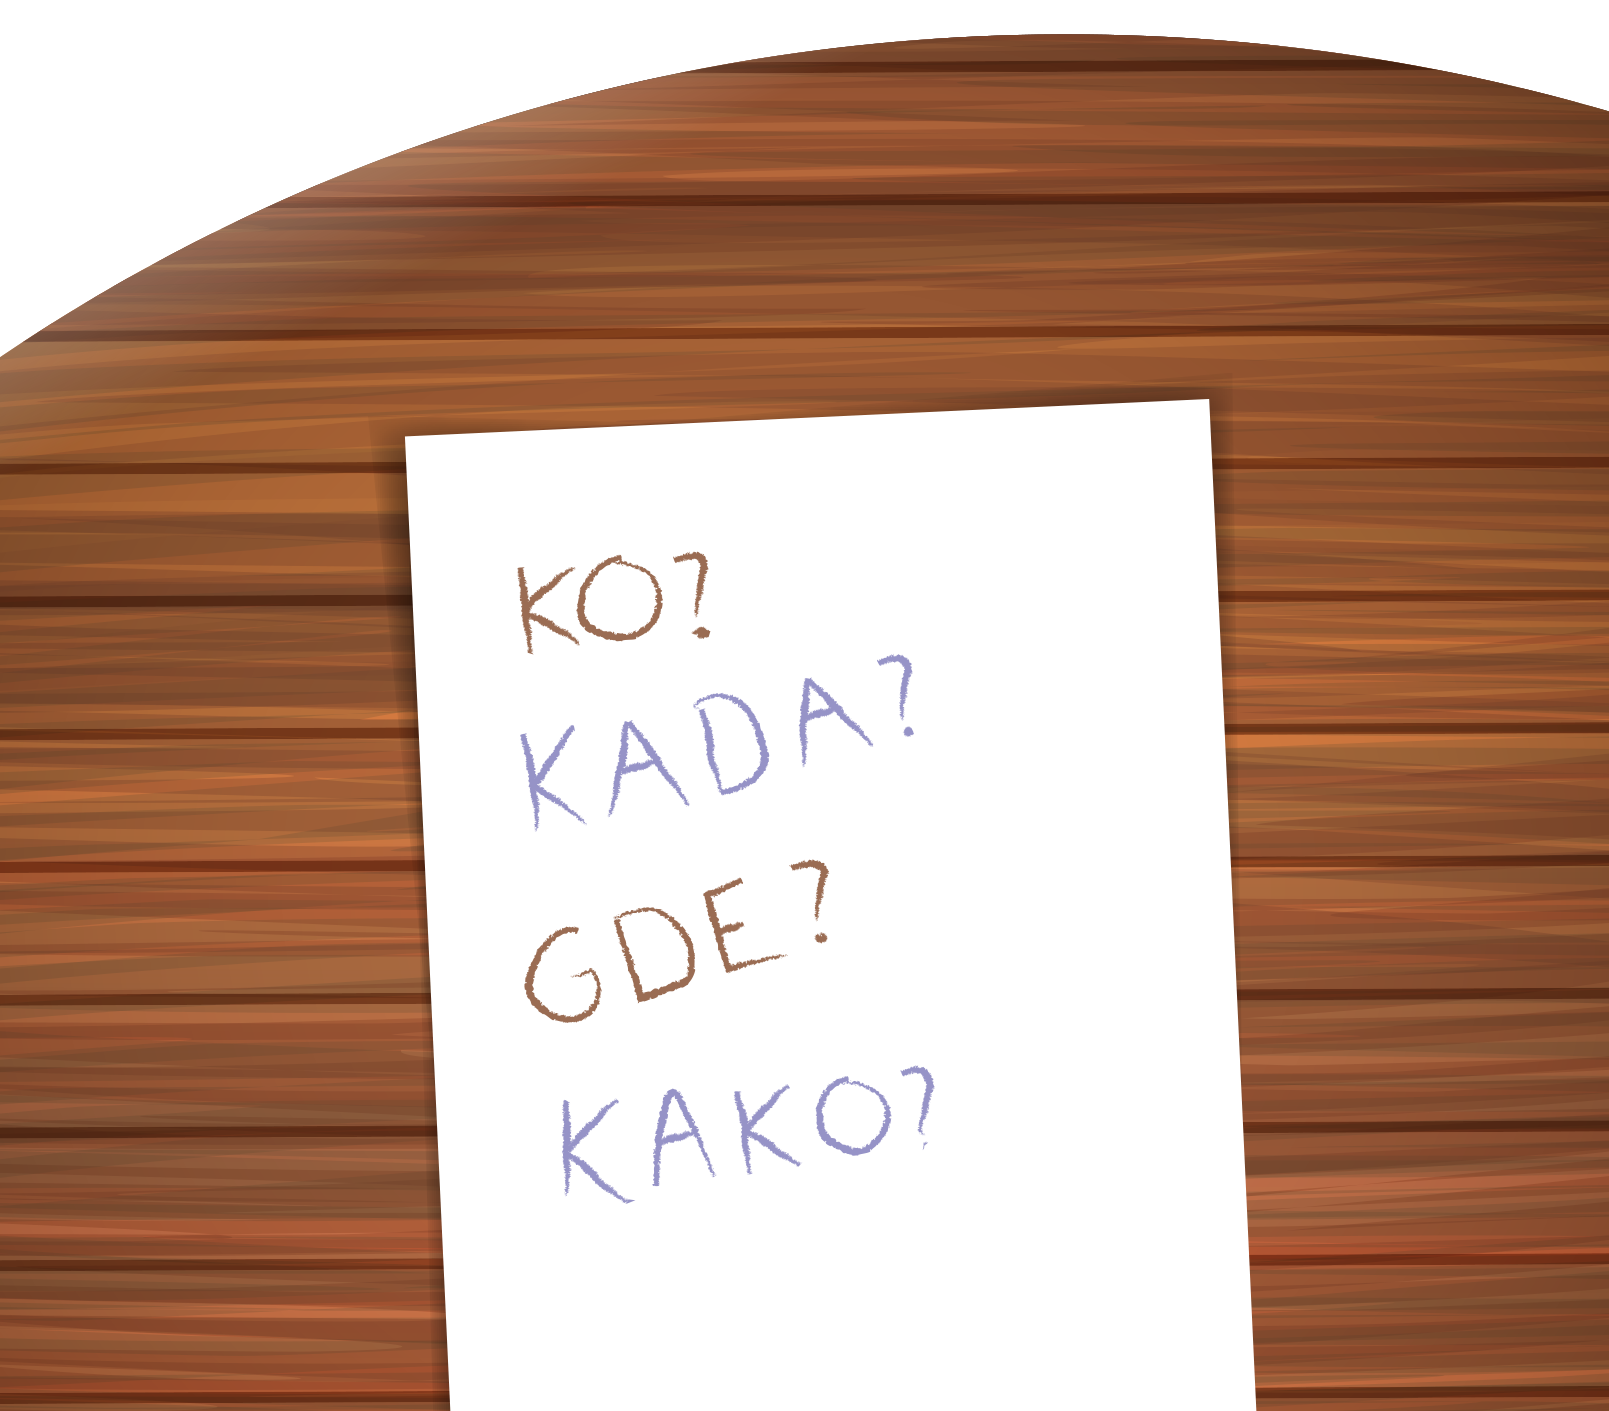 KO?
KADA?
GDE?
KAKO?